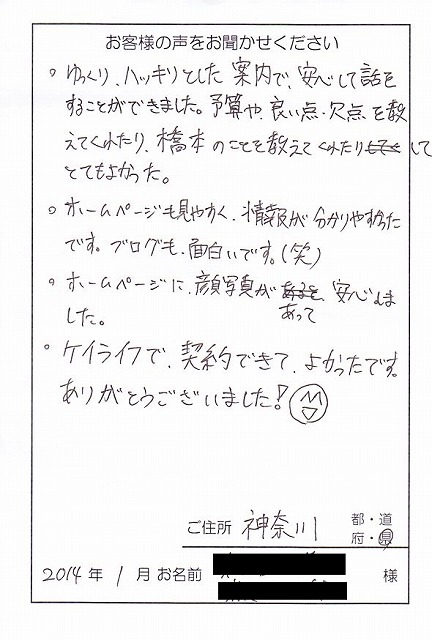 お客様の声をお聞かせください
。ゆっくり、ハッキリとした案内で、安心して話を
することができました。予算や、良い点、欠点を教
えてくれたり、橋本のことを教えてくれたりして
とてもよかった。
。ホームページも見やすく、情報が分かりやすかった
です。ブログも、面白いです。(笑)
。ホームページに、顔写真があって安心しま
した。
。ケイライフで、契約できて、よかったです。
ありがとうございました!
ご住所 神奈川 都・道
府・県
2014年 1月 お名前 様